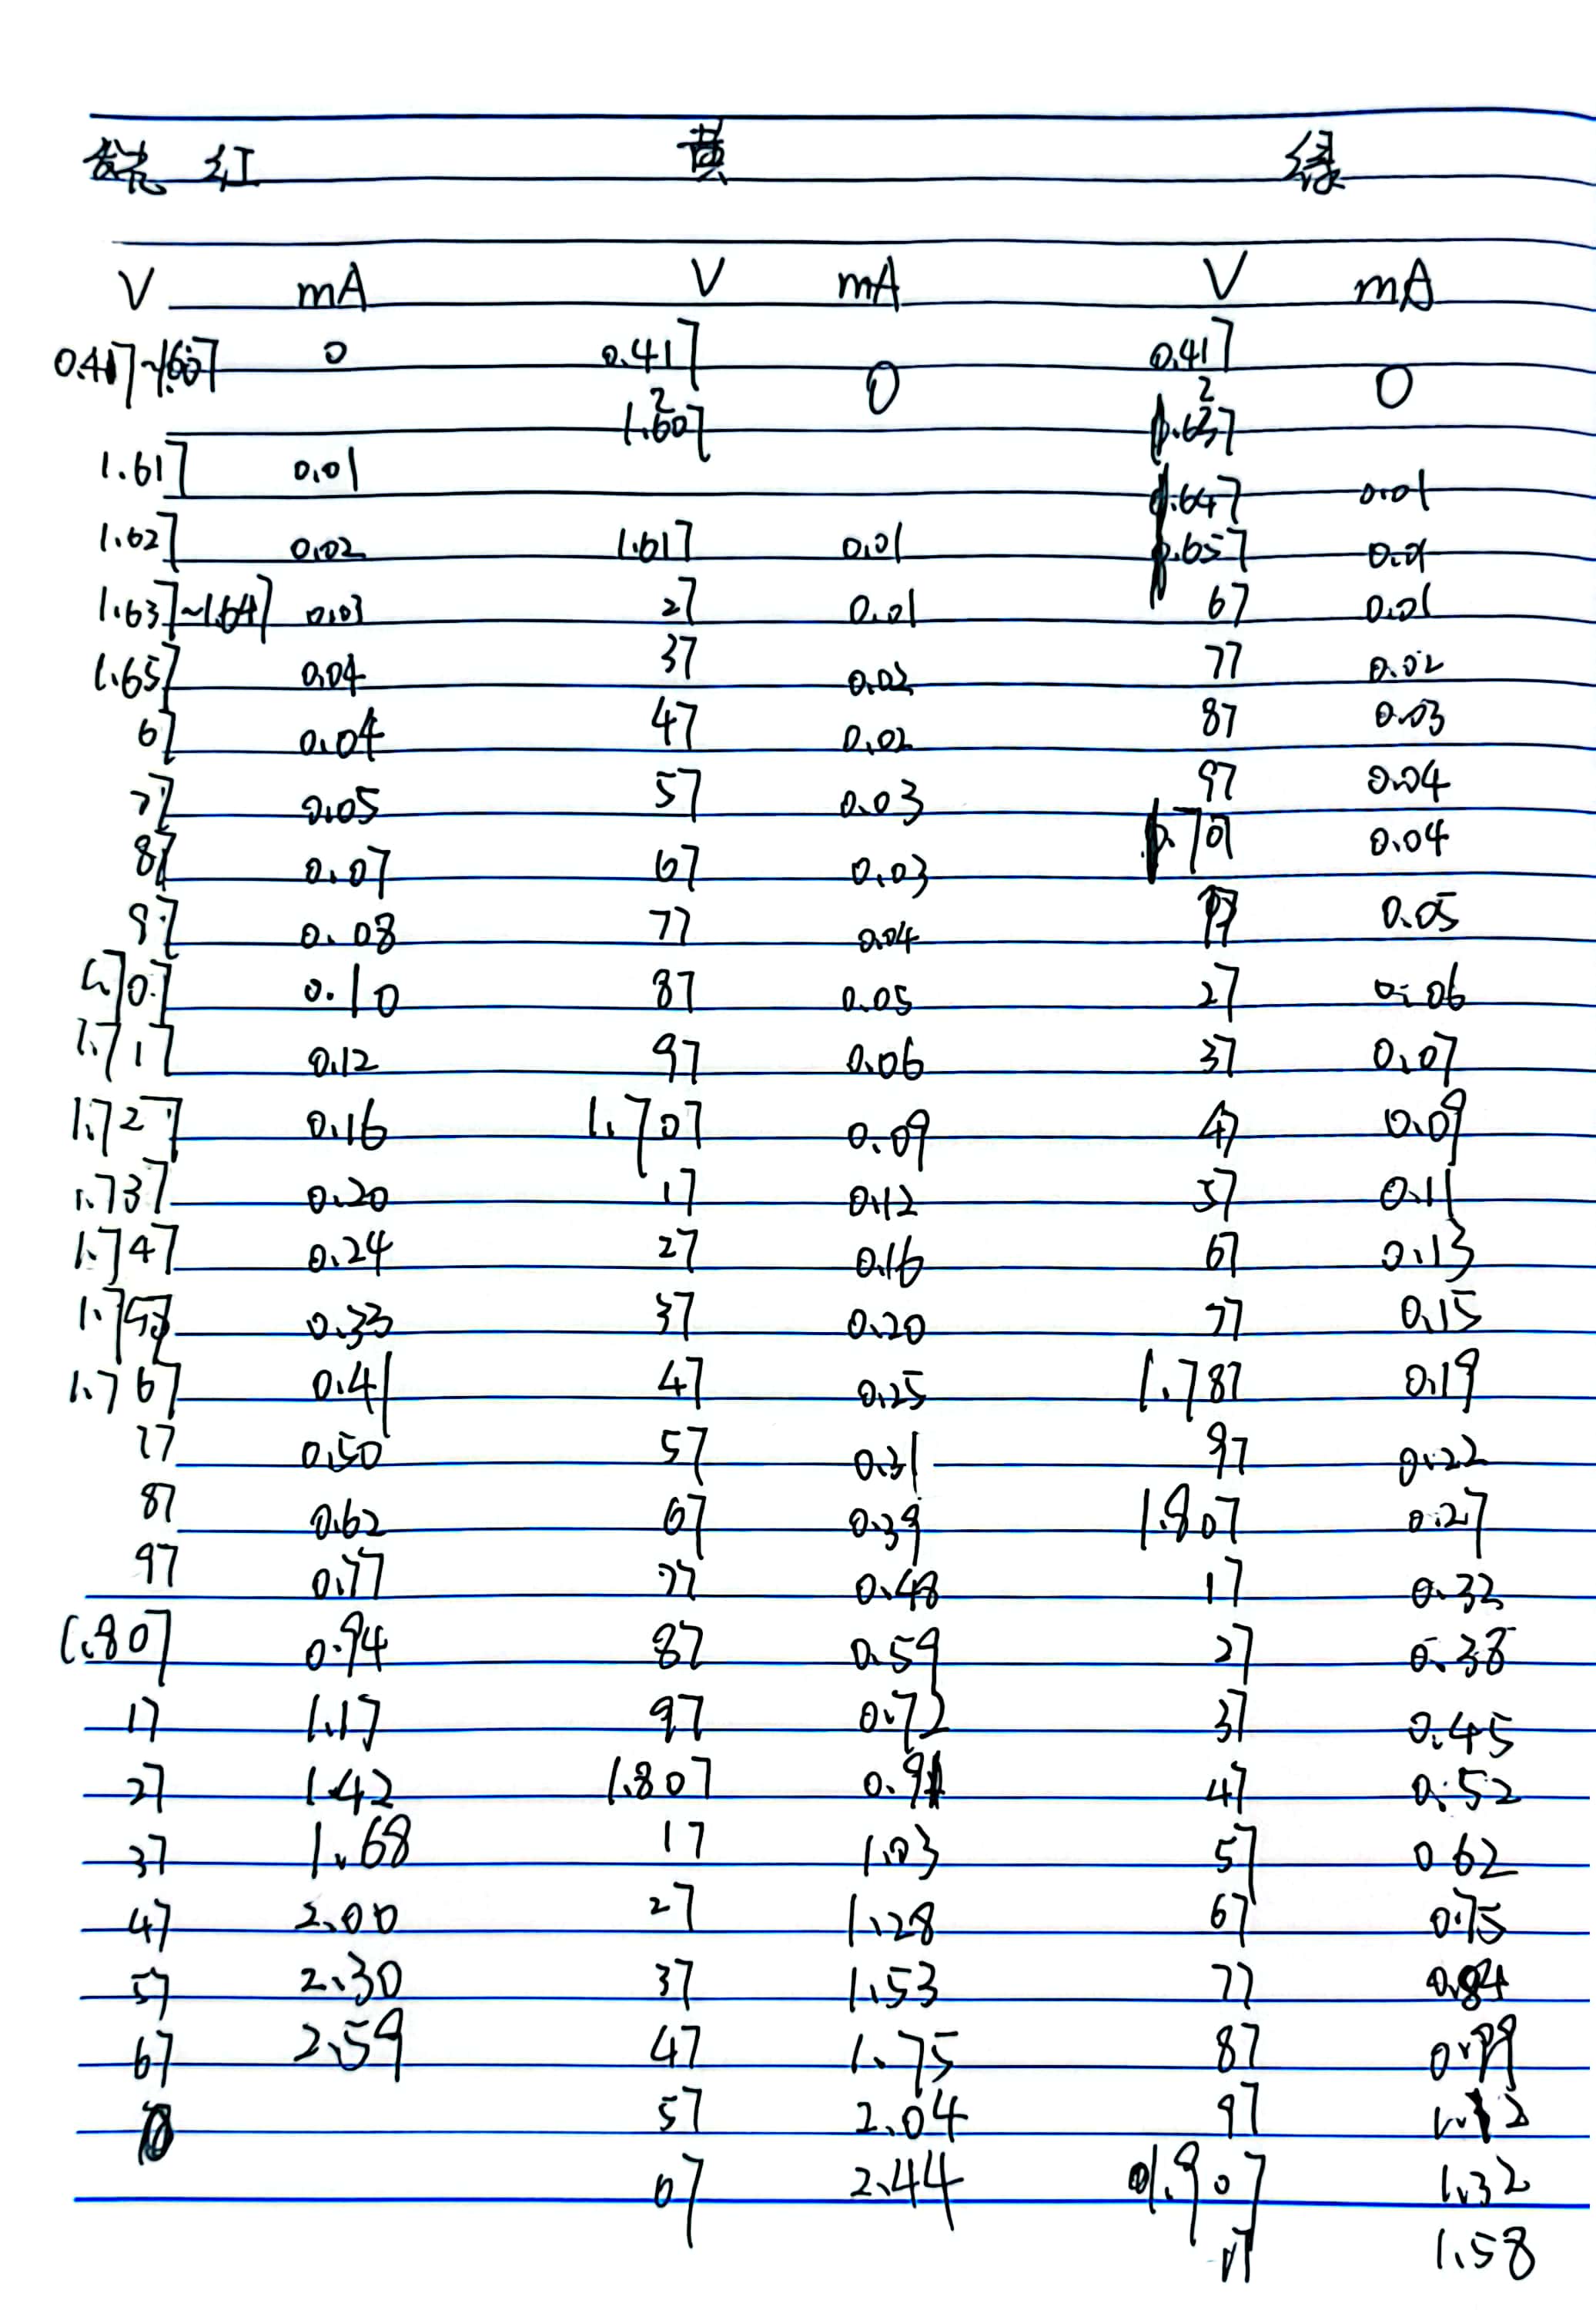 发光 红 黄 绿
V mA V mA V mA
0.417~1.607 0 0.417 0.417
~ 0 ~ 0
1.607 1.637
1.617 0.01
1.647 0.01
1.627 0.02 1.617 0.01 1.657 0.01
1.637~1.647 0.03 27 0.01 67 0.01
1.657 0.04 37 0.02 77 0.02
67 0.04 47 0.02 87 0.03
77 0.05 57 0.03 97 0.04
87 0.07 67 0.03 1.707 0.04
97 0.08 77 0.04 17 0.05
1.707 0.10 87 0.05 27 0.06
1.717 0.12 97 0.06 37 0.07
1.727 0.16 1.707 0.09 47 0.09
1.737 0.20 17 0.12 57 0.11
1.747 0.24 27 0.16 67 0.13
1.757 0.33 37 0.20 77 0.15
1.767 0.41 47 0.25 1.787 0.19
77 0.50 57 0.31 97 0.22
87 0.62 67 0.39 1.807 0.27
97 0.77 77 0.48 17 0.32
1.807 0.94 87 0.59 27 0.38
17 1.17 97 0.72 37 0.45
27 1.42 1.807 0.91 47 0.52
37 1.68 17 1.03 57 0.62
47 2.00 27 1.28 67 0.75
57 2.30 37 1.53 77 0.84
67 2.59 47 1.75 87 0.99
57 2.04 97 1.12
67 2.44 1.907 1.32
17 1.58